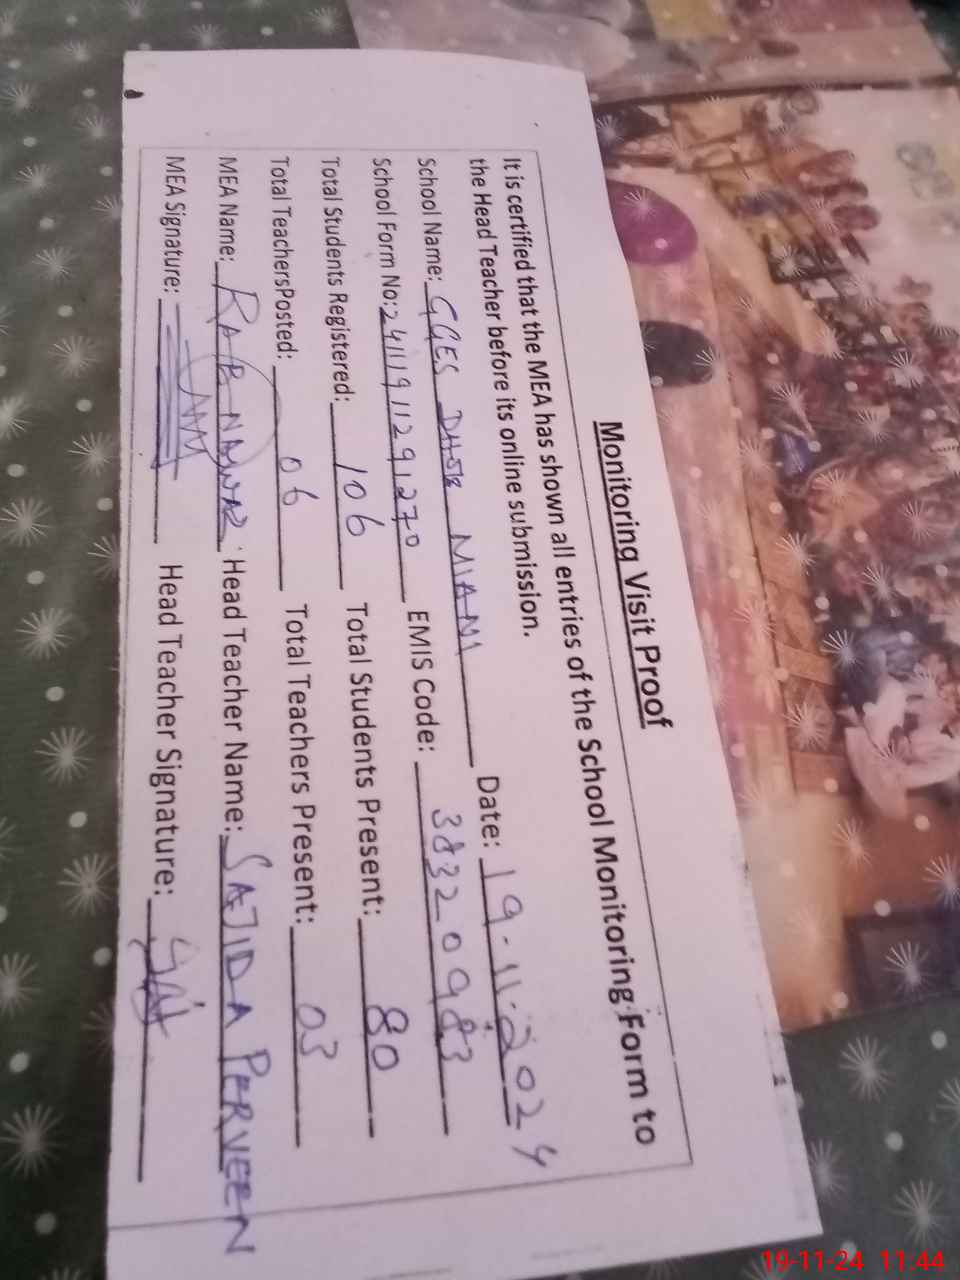 Monitoring Visit Proof
It is certified that the MEA has shown all entries of the School Monitoring Form to
the Head Teacher before its online submission.
School Name: GGES DHSK MIANI Date: 19-11-2024
School Form No: 24111911291270 EMIS Code: 38320983
Total Students Registered: 106 Total Students Present: 80
Total TeachersPosted: 06 Total Teachers Present: 03
MEA Name: RAB NAWAZ Head Teacher Name: SAJIDA PERVEEN
MEA Signature: Head Teacher Signature:
19-11-24 11:44